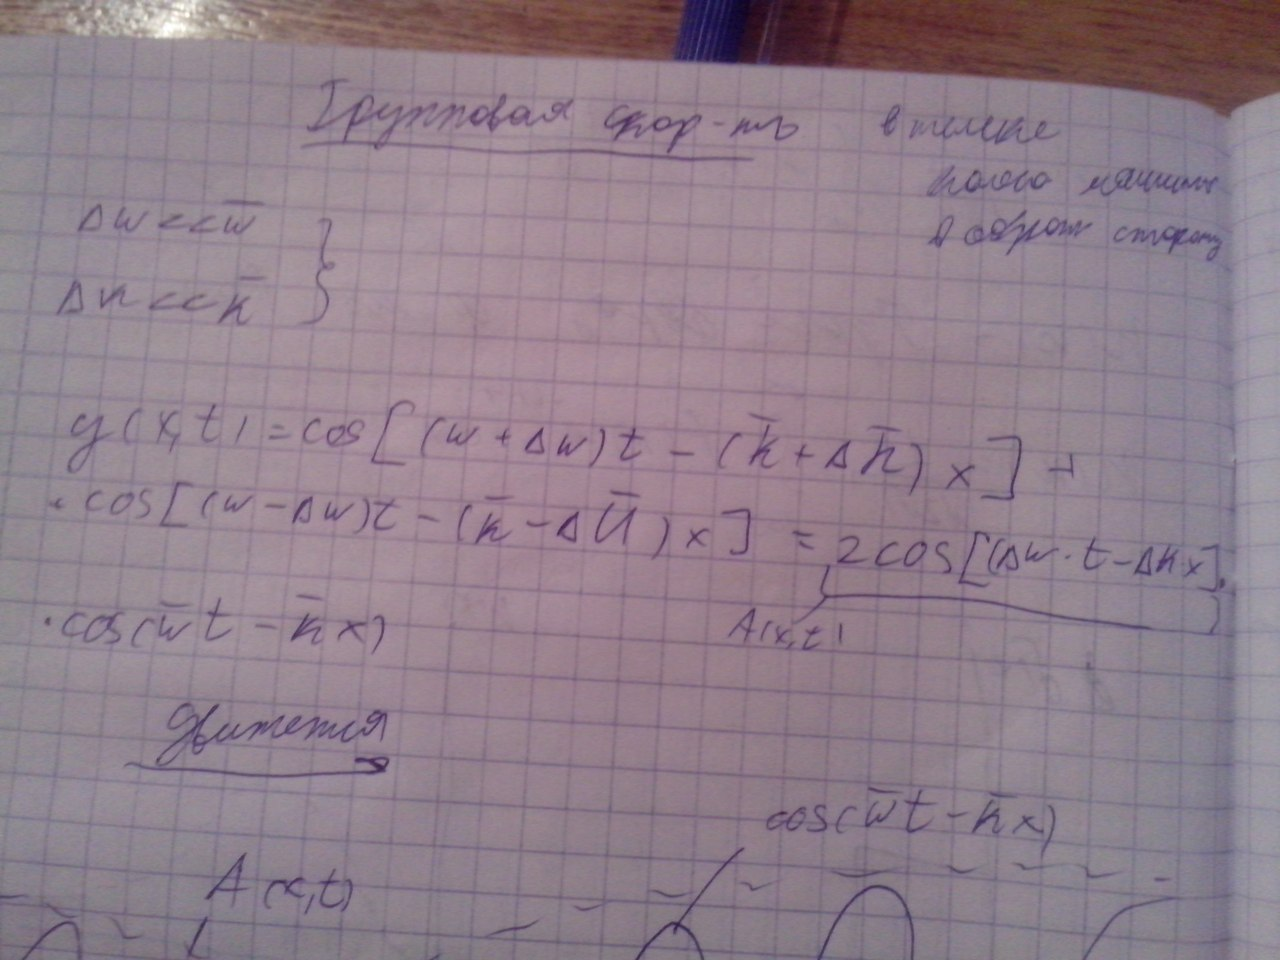 Групповая скор-ть в телеке
колесо машины
в обрат сторону
Δw<<w̄ }
Δk<<k̄
y(x,t)=cos[(w+Δw)t-(k̄+Δk̄)x]+
·cos[(w-Δw)t-(k̄-Δk̄)x] = 2cos[(Δw·t-Δk·x].
A(x,t)
·cos(w̄t-k̄x)
движется
cos(w̄t-k̄x)
A(x,t)